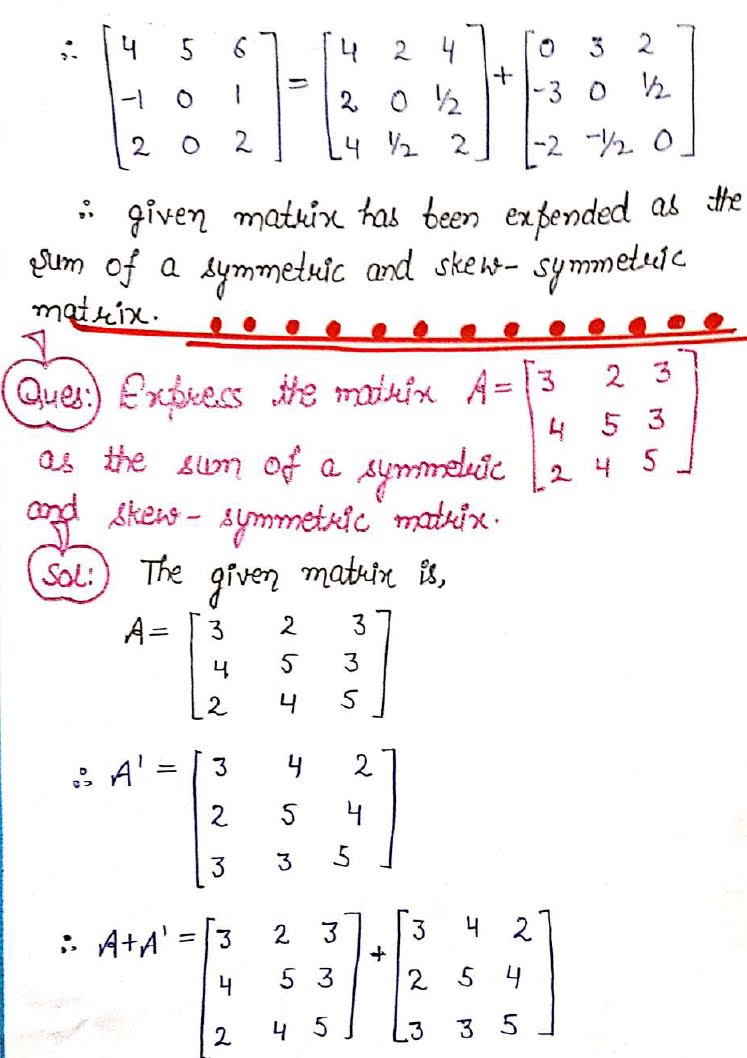 ∴ [4 5 6] = [4 2 4] + [0 3 2]
[-1 0 1] [2 0 1/2] [-3 0 1/2]
[2 0 2] [4 1/2 2] [-2 -1/2 0]
∴ given matrix has been expended as the
sum of a symmetric and skew-symmetric
matrix.
Ques: Express the matrix A = [3 2 3]
[4 5 3]
as the sum of a symmetric [2 4 5]
and skew-symmetric matrix.
Sol: The given matrix is,
A = [3 2 3]
[4 5 3]
[2 4 5]
∴ A' = [3 4 2]
[2 5 4]
[3 3 5]
∴ A+A' = [3 2 3] + [3 4 2]
[4 5 3] [2 5 4]
[2 4 5] [3 3 5]